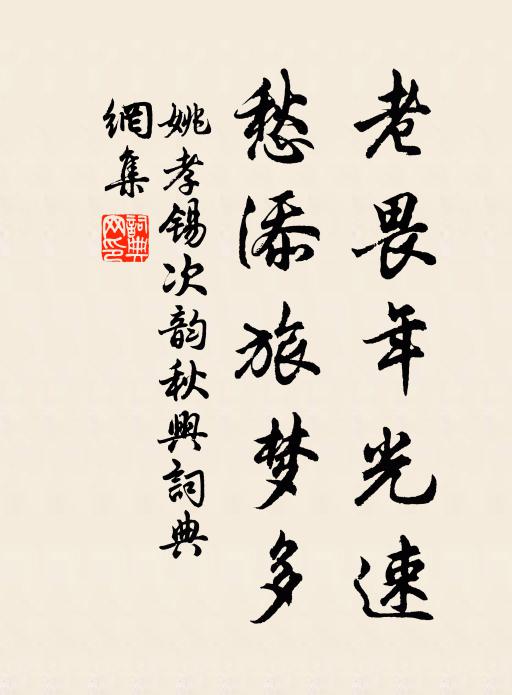 老畏年光速
愁添旅梦多
姚孝锡次韵秋興詞典
網集
詞典
网印